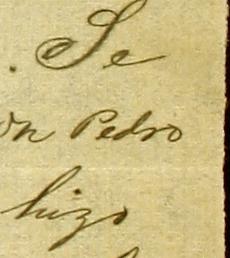 . Se
on Pedro
hizo